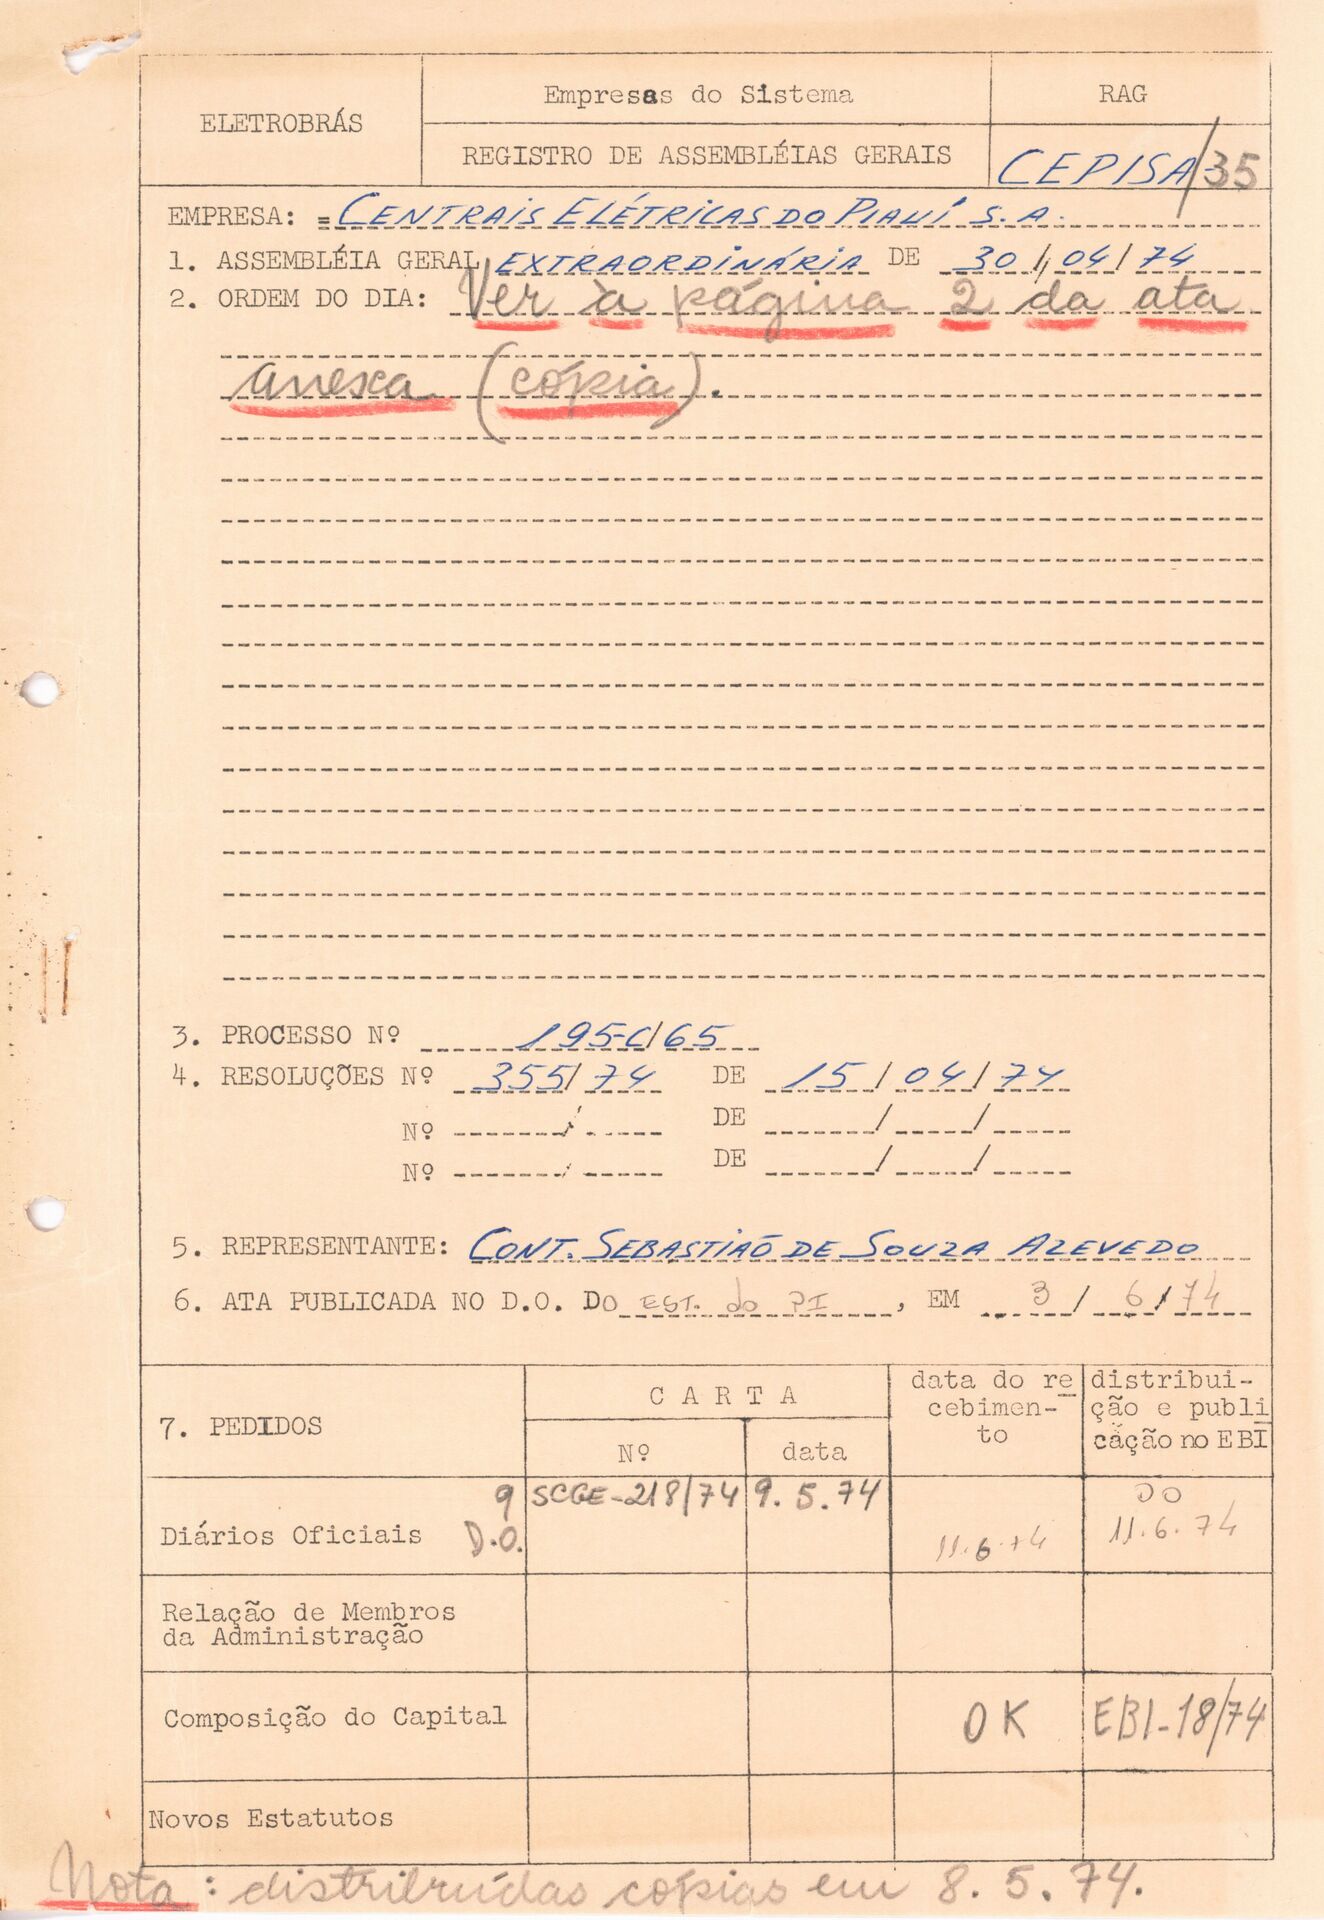 ELETROBRÁS
Empresas do Sistema
REGISTRO DE ASSEMBLÉIAS GERAIS
RAG
CEPISA/35
EMPRESA: = CENTRAIS ELÉTRICAS DO PIAUÍ S.A.
1. ASSEMBLÉIA GERAL EXTRAORDINÁRIA DE 30/04/74
2. ORDEM DO DIA: Ver à página 2 da ata
anexa (cópia).
3. PROCESSO Nº 195-C/65
4. RESOLUÇÕES Nº 355/74 DE 15/04/74
Nº / DE / /
Nº / DE / /
5. REPRESENTANTE: CONT. SEBASTIÃO DE SOUZA AZEVEDO
6. ATA PUBLICADA NO D.O. DO EST. do PI, EM 3/6/74
7. PEDIDOS
CARTA
Nº
data
data do re
cebimen-
to
distribui-
ção e publi
cação no EBI
Diários Oficiais
9
D.O.
SCGE-218/74
9.5.74
11.6.74
DO
11.6.74
Relação de Membros
da Administração
Composição do Capital
OK
EBI-18/74
Novos Estatutos
Nota: distribuídas cópias em 8.5.74.